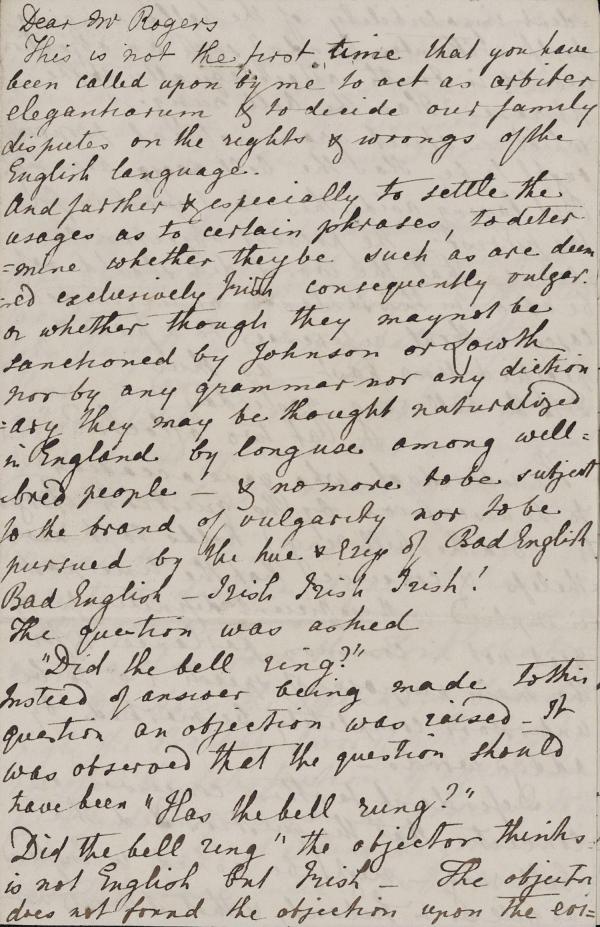 Dear Mr Rogers
This is not the first time that you have
been called upon by me to act as arbiter
elegantiarum & to decide our family
disputes on the rights & wrongs of the
English language.
And further & especially to settle the
usages as to certain phrases, to deter
=mine whether they be such as are deem
=ed exclusively Irish consequently vulgar.
or whether though they may not be
sanctioned by Johnson or Lowth
nor by any grammar nor any diction
=ary they may be thought naturalized
in England by long use among well=
bred people – & no more to be subject
to the brand of vulgarity nor to be
pursued by the hue & cry of Bad English
Bad English – Irish Irish Irish!
The question was asked
"Did the bell ring?"
Instead of answer being made to this
question an objection was raised – It
was observed that the question should
have been "Has the bell rung?"
Did the bell ring" the objector thinks
is not English but Irish – The objector
does not found the objection upon the